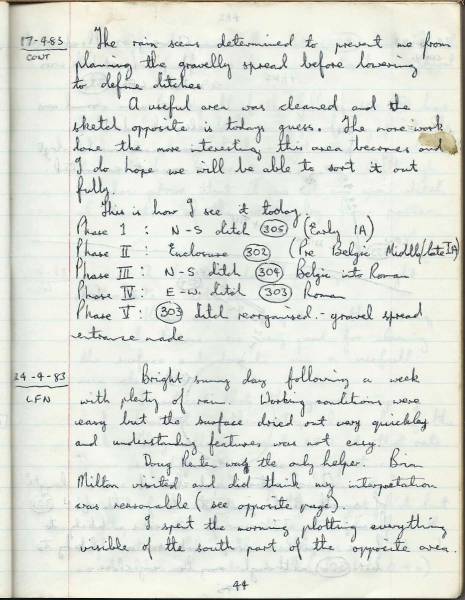 17-4-83
CONT
The rain seems determined to prevent me from
planning the gravelly spread before lowering
to define ditches
A useful area was cleaned and the
sketch opposite is todays guess. The more work
done the more interesting this area becomes and
I do hope we will be able to sort it out
fully.
This is how I see it today.
Phase I : N-S ditch 305 (Early IA)
Phase II : Enclosure 302 (Pre Belgic Middly/late IA)
Phase III : N-S ditch 304 Belgic into Roman
Phase IV : E-W ditch 303 Roman
Phase V : 303 ditch reorganised - gravel spread
entrance made
24-4-83
LFN
Bright sunny day following a week
with plenty of rain. Working conditions were
easy but the surface dried out very quickley
and understanding features was not easy.
Doug was the only helper. Brian
Milton visited and did think my interpretation
was reasonable (see opposite page).
I spent the morning plotting everything
visible of the south part of the opposite area.
44